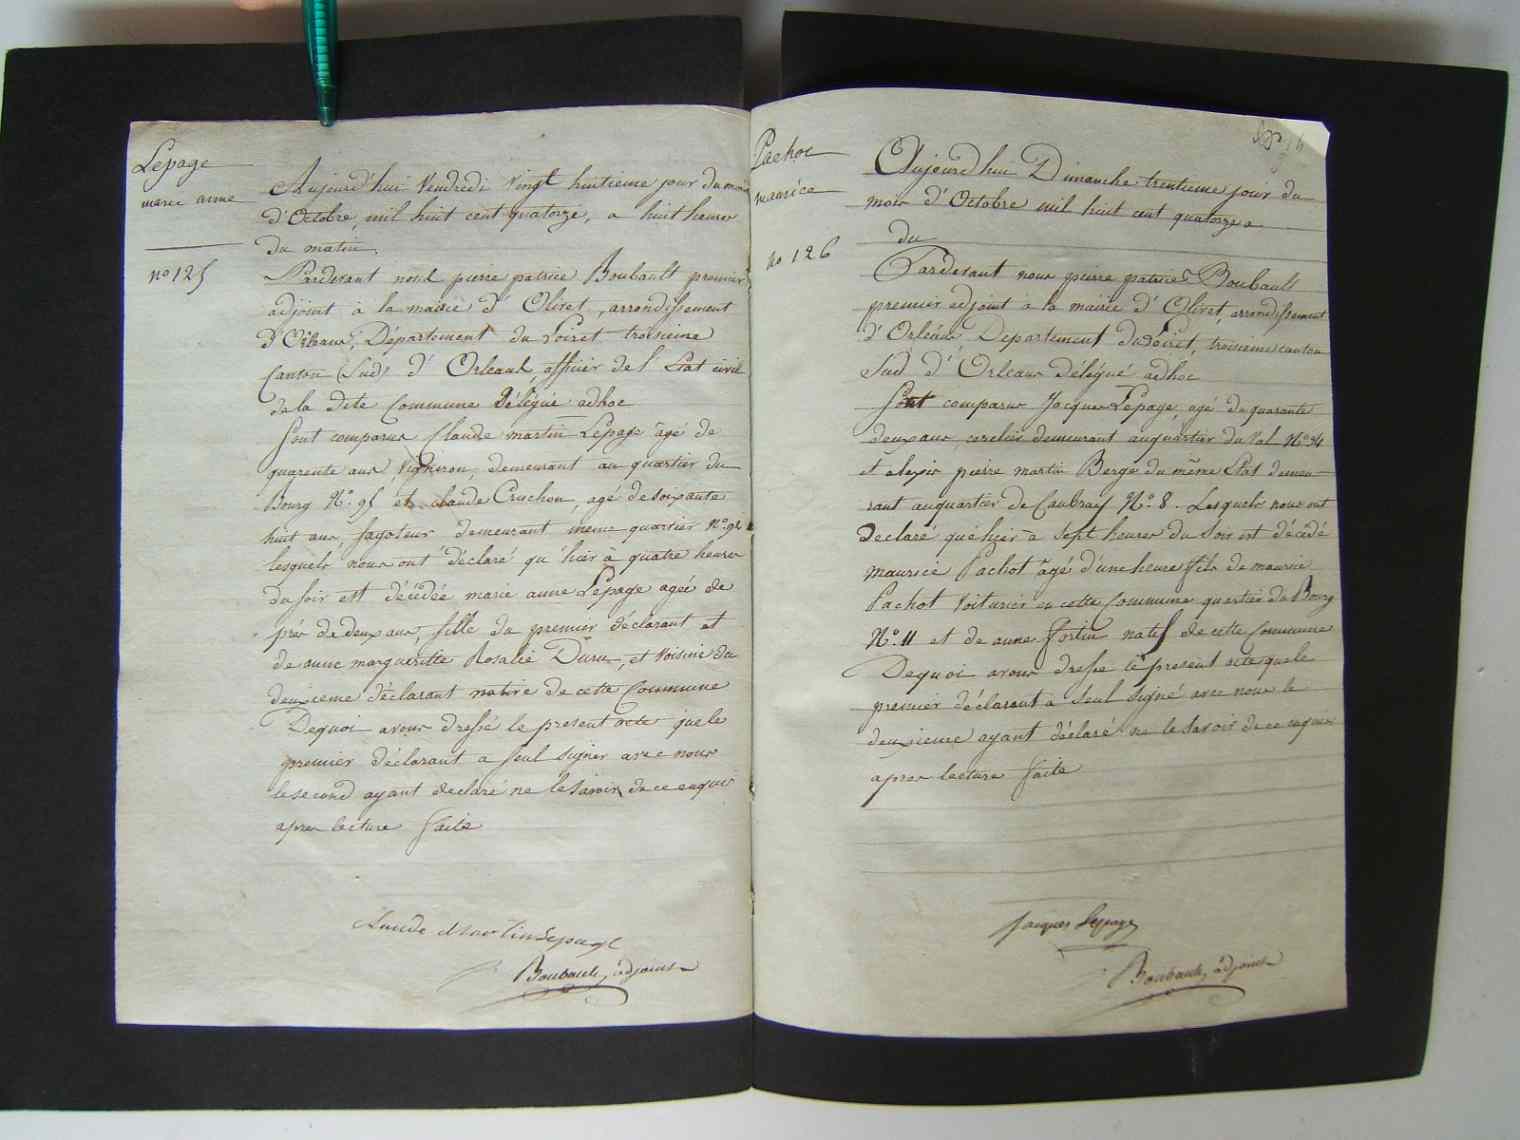 Lepage
marie anne
no 125
Aujourd'hui Vendredi Vingt huitieme jour du mois
d'Octobre, mil huit cent quatorze, a huit heures
du matin.
Pardevant nous pierre patrice Boubault premier
adjoint à la mairie d'Olivet, arrondissement
d'Orleans, Département du Loiret troisieme
Canton (Sud) d'Orleans, officier de l'Etat civil
de la dite Commune délégué adhoc
Sont comparus Claude martin Lepage âgé de
quarente ans, Vigneron, demeurant au quartier du
Bourg No. 95 et claude Cruchon, agé de soixante
huit ans, fagoteur demeurant meme quartier No. 92
lesquels nous ont déclaré qu'hier à quatre heures
du soir est décédée marie anne Lepage agée de
près de deux ans, fille du premier déclarant et
de anne margueritte Rosalie Duru, et Voisine du
deuxieme déclarant native de cette Commune
Dequoi avons dressé le present acte que le
premier déclarant a seul signer avec nous
le second ayant declaré ne le savoir de ce enquis
apres lecture faite
Claude Martin Lepage
Boubault, adjoint
Pachot
maurice
no 126
Aujourd'hui Dimanche trentieme jour du
mois d'Octobre mil huit cent quatorze a
du
Pardevant nous pierre patrice Boubault
premier adjoint à la mairie d'Olivet, arrondissement
d'Orléans Departement du Loiret, troisieme canton
Sud d'Orleans délégué adhoc
Sont comparus Jacques Lepage, agé de quarante
deux ans, cerclier demeurant au quartier du Val No. 34
et pierre martin Berge du même Etat demeu-
rant au quartier de Caubray No. 8. Lesquels nous ont
Declaré que hier à sept heures du soir est décédé
maurice Pachot âgé d'une heure fils de maurice
Pachot Voiturier en cette Commune quartier du Bourg
No. 11 et de anne fortin natif de cette Commune
Dequoi avons dressé le present acte que le
premier déclarant a seul signé avec nous le
deuxieme ayant déclaré ne le savoir de ce requis
apres lecture faite
Jacques Lepage
Boubault, adjoint